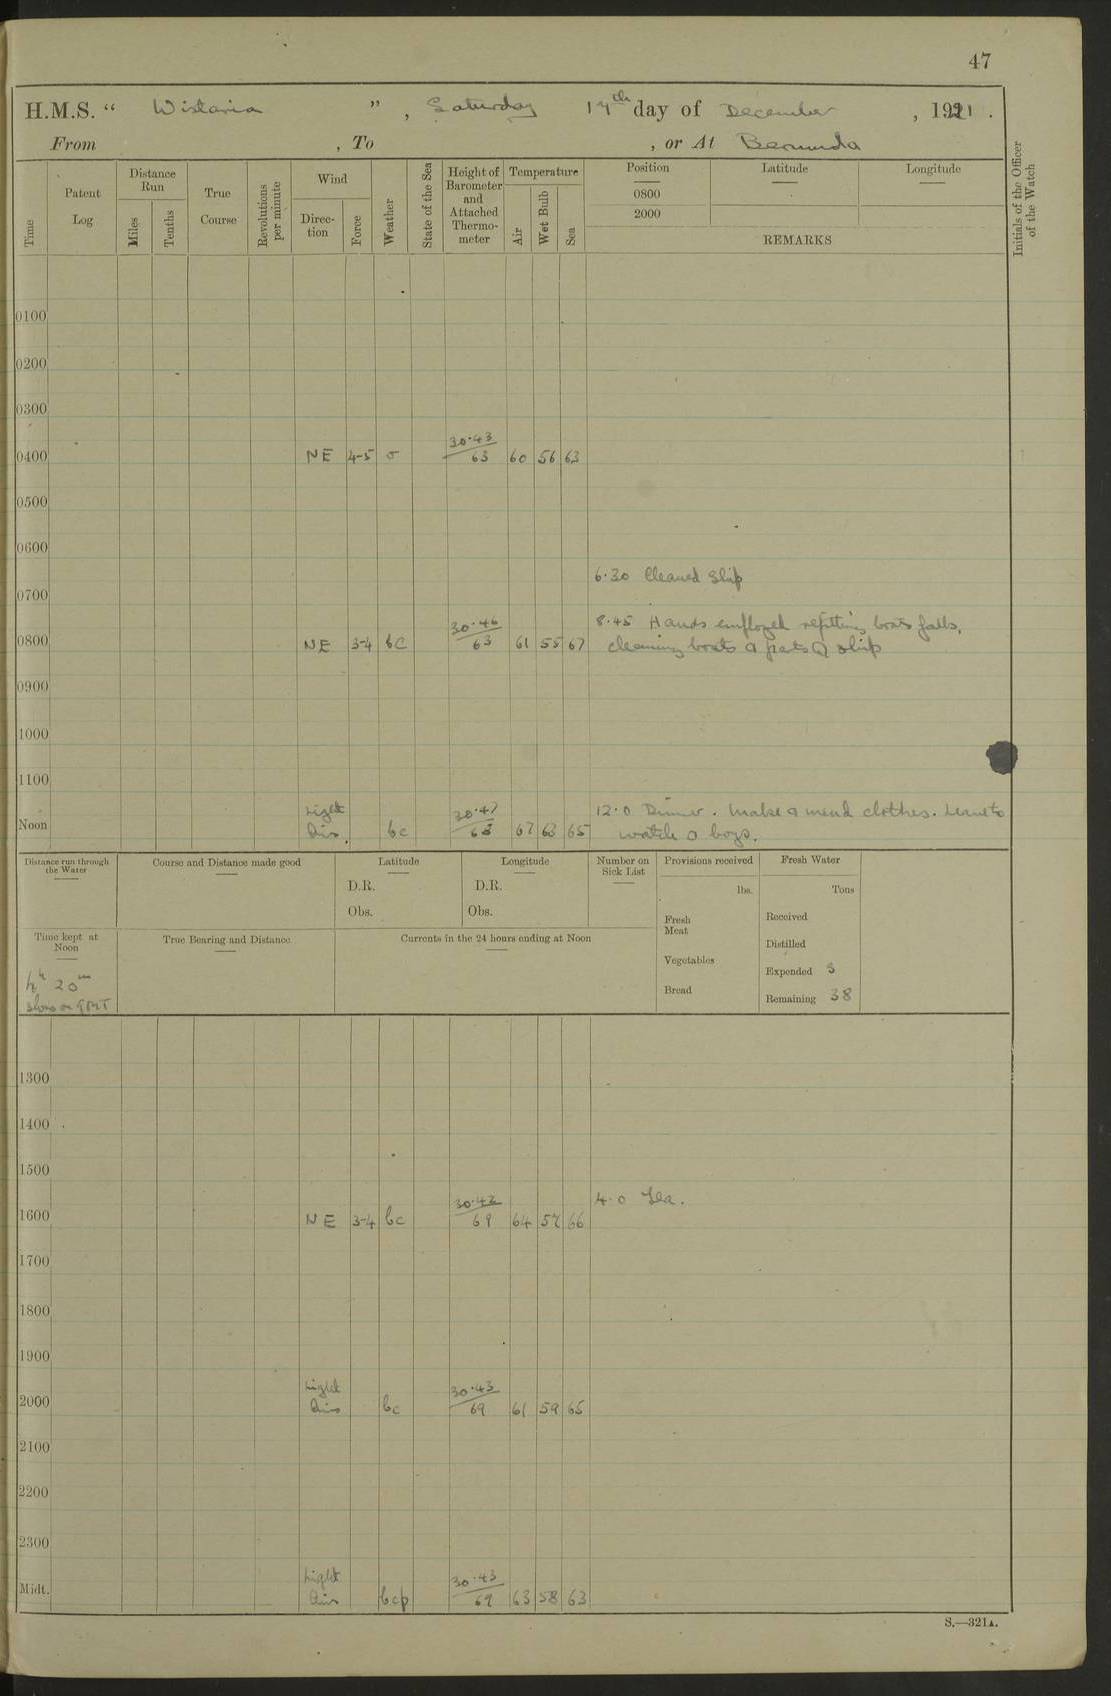 47
H.M.S. “ Wistaria ”, Saturday 17th day of December, 1921.
From , To , or At Bermuda
Time
Patent Log
Distance Run
Miles
Tenths
True Course
Revolutions per minute
Wind
Direc-tion
Force
Weather
State of the Sea
Height of Barometer and Attached Thermo-meter
Temperature
Air
Wet Bulb
Sea
Position
0800
2000
Latitude
Longitude
REMARKS
Initials of the Officer of the Watch
0100
0200
0300
30.43
0400 NE 4-5 o 63 60 56 63
0500
0600
6.30 Cleaned Ship
0700
30.46 8.45 Hands employed refitting boats falls,
0800 NE 3-4 bc 63 61 55 67 cleaning boats & parts of ship
0900
1000
1100
Light 30.47 12.0 Dinner. Make & mend clothes. Leave to
Noon Airs. bc 63 67 63 65 watch & boys.
Distance run through the Water
Course and Distance made good
Latitude
D.R.
Obs.
Longitude
D.R.
Obs.
Number on Sick List
Provisions received
lbs.
Fresh Meat
Vegetables
Bread
Fresh Water
Tons
Received
Distilled
Expended 3
Remaining 38
Time kept at Noon
4h 20m
slow on GMT
True Bearing and Distance
Currents in the 24 hours ending at Noon
1300
1400
1500
30.42 4.0 Tea.
1600 NE 3-4 bc 69 64 57 66
1700
1800
1900
Light 30.43
2000 Airs bc 69 61 59 65
2100
2200
2300
Light 30.43
Midt. Airs bcp 69 63 58 63
S.—321A.